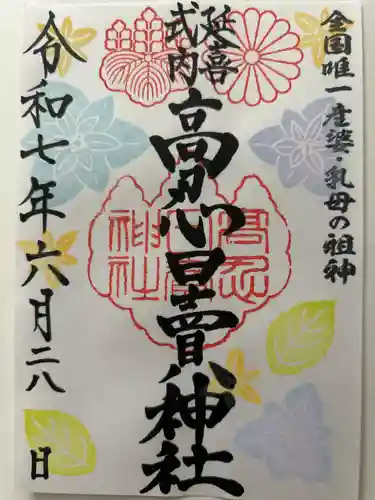 全国唯一産婆・乳母の祖神
延喜
式内
高忍日賣神社
令和七年六月二八日